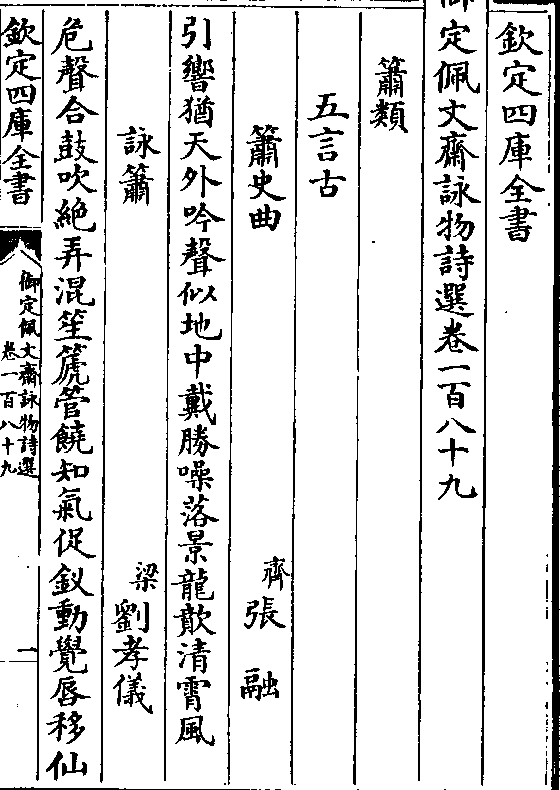 欽定四庫全書
御定佩文齋詠物詩選卷一百八十九
簫類
五言古
簫史曲
齊張融
引響猶天外吟聲似地中戴勝噪落景龍歕清霄風
詠簫
梁劉孝儀
危聲合鼓吹絶弄混笙篪管饒知氣促釵動覺唇移仙
欽定四庫全書
御定佩文齋詠物詩選
卷一百八十九
一